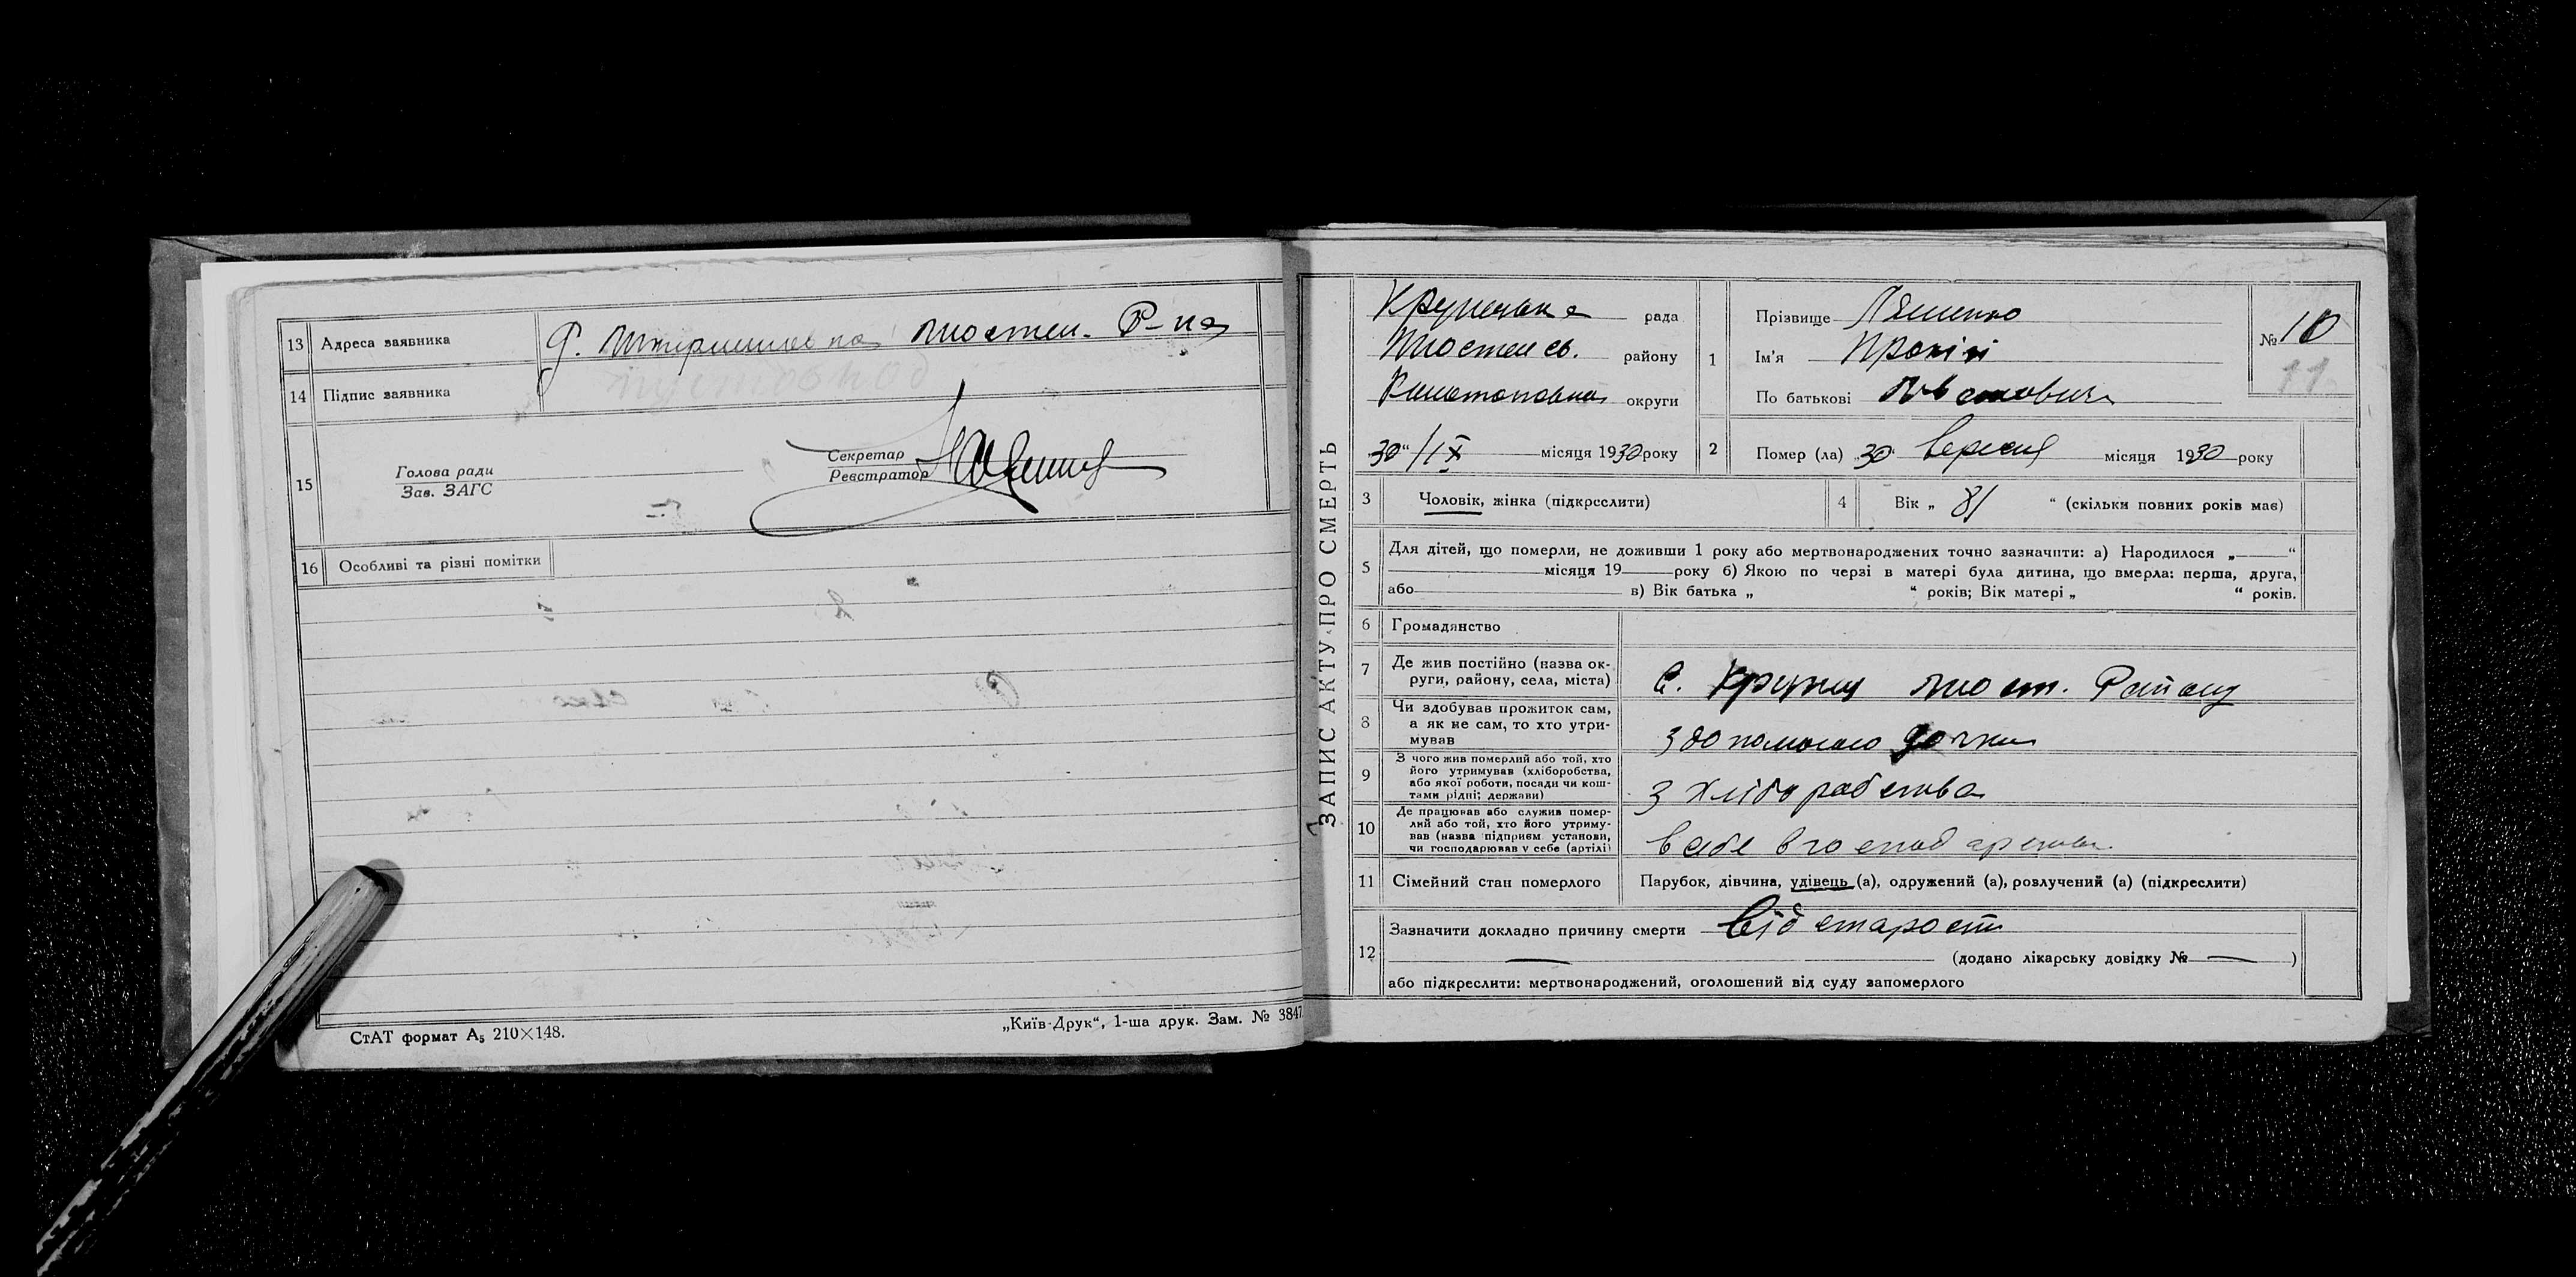 13 Адреса заявника
14 Підпис заявника
15 Голова ради
Зав. ЗАГС
Секретар
Реєстратор
16 Особливі та різні помітки
СтАТ формат А₅ 210×148.
„Київ-Друк“, 1-ша друк. Зам. № 3847
ЗАПИС АКТУ ПРО СМЕРТЬ
рада
району
Конотопська округи
30“/IX місяця 1930 року
1 Прізвище Ляшенко
Ім'я Прокіп
По батькові
№ 10
11
2 Помер (ла) „30“ Вересня місяця 1930 року
3 Чоловік, жінка (підкреслити)
4 Вік „ 81 “ (скільки повних років має)
5 Для дітей, що померли, не доживши 1 року або мертвонароджених точно зазначити: а) Народилося „ “
місяця 19 року б) Якою по черзі в матері була дитина, що вмерла: перша, друга,
або в) Вік батька „ “ років; Вік матері „ “ років.
6 Громадянство
7 Де жив постійно (назва ок-
руги, району, села, міста)
С. Району
8 Чи здобував прожиток сам,
а як не сам, то хто утри-
мував
З допомогою дочки
9 З чого жив померлий або той, хто
його утримував (хліборобства,
або якої роботи, посади чи кош-
тами рідні; держави)
З хліборобства
10 Де працював або служив помер-
лий або той, хто його утриму-
вав (назва підприєм. установи,
чи господарював у себе (артілі)
в себе в господарстві.
11 Сімейний стан померлого
Парубок, дівчина, удівець (а), одружений (а), розлучений (а) (підкреслити)
12 Зазначити докладно причину смерти Від старости
(додано лікарську довідку № — )
або підкреслити: мертвонароджений, оголошений від суду запомерлого